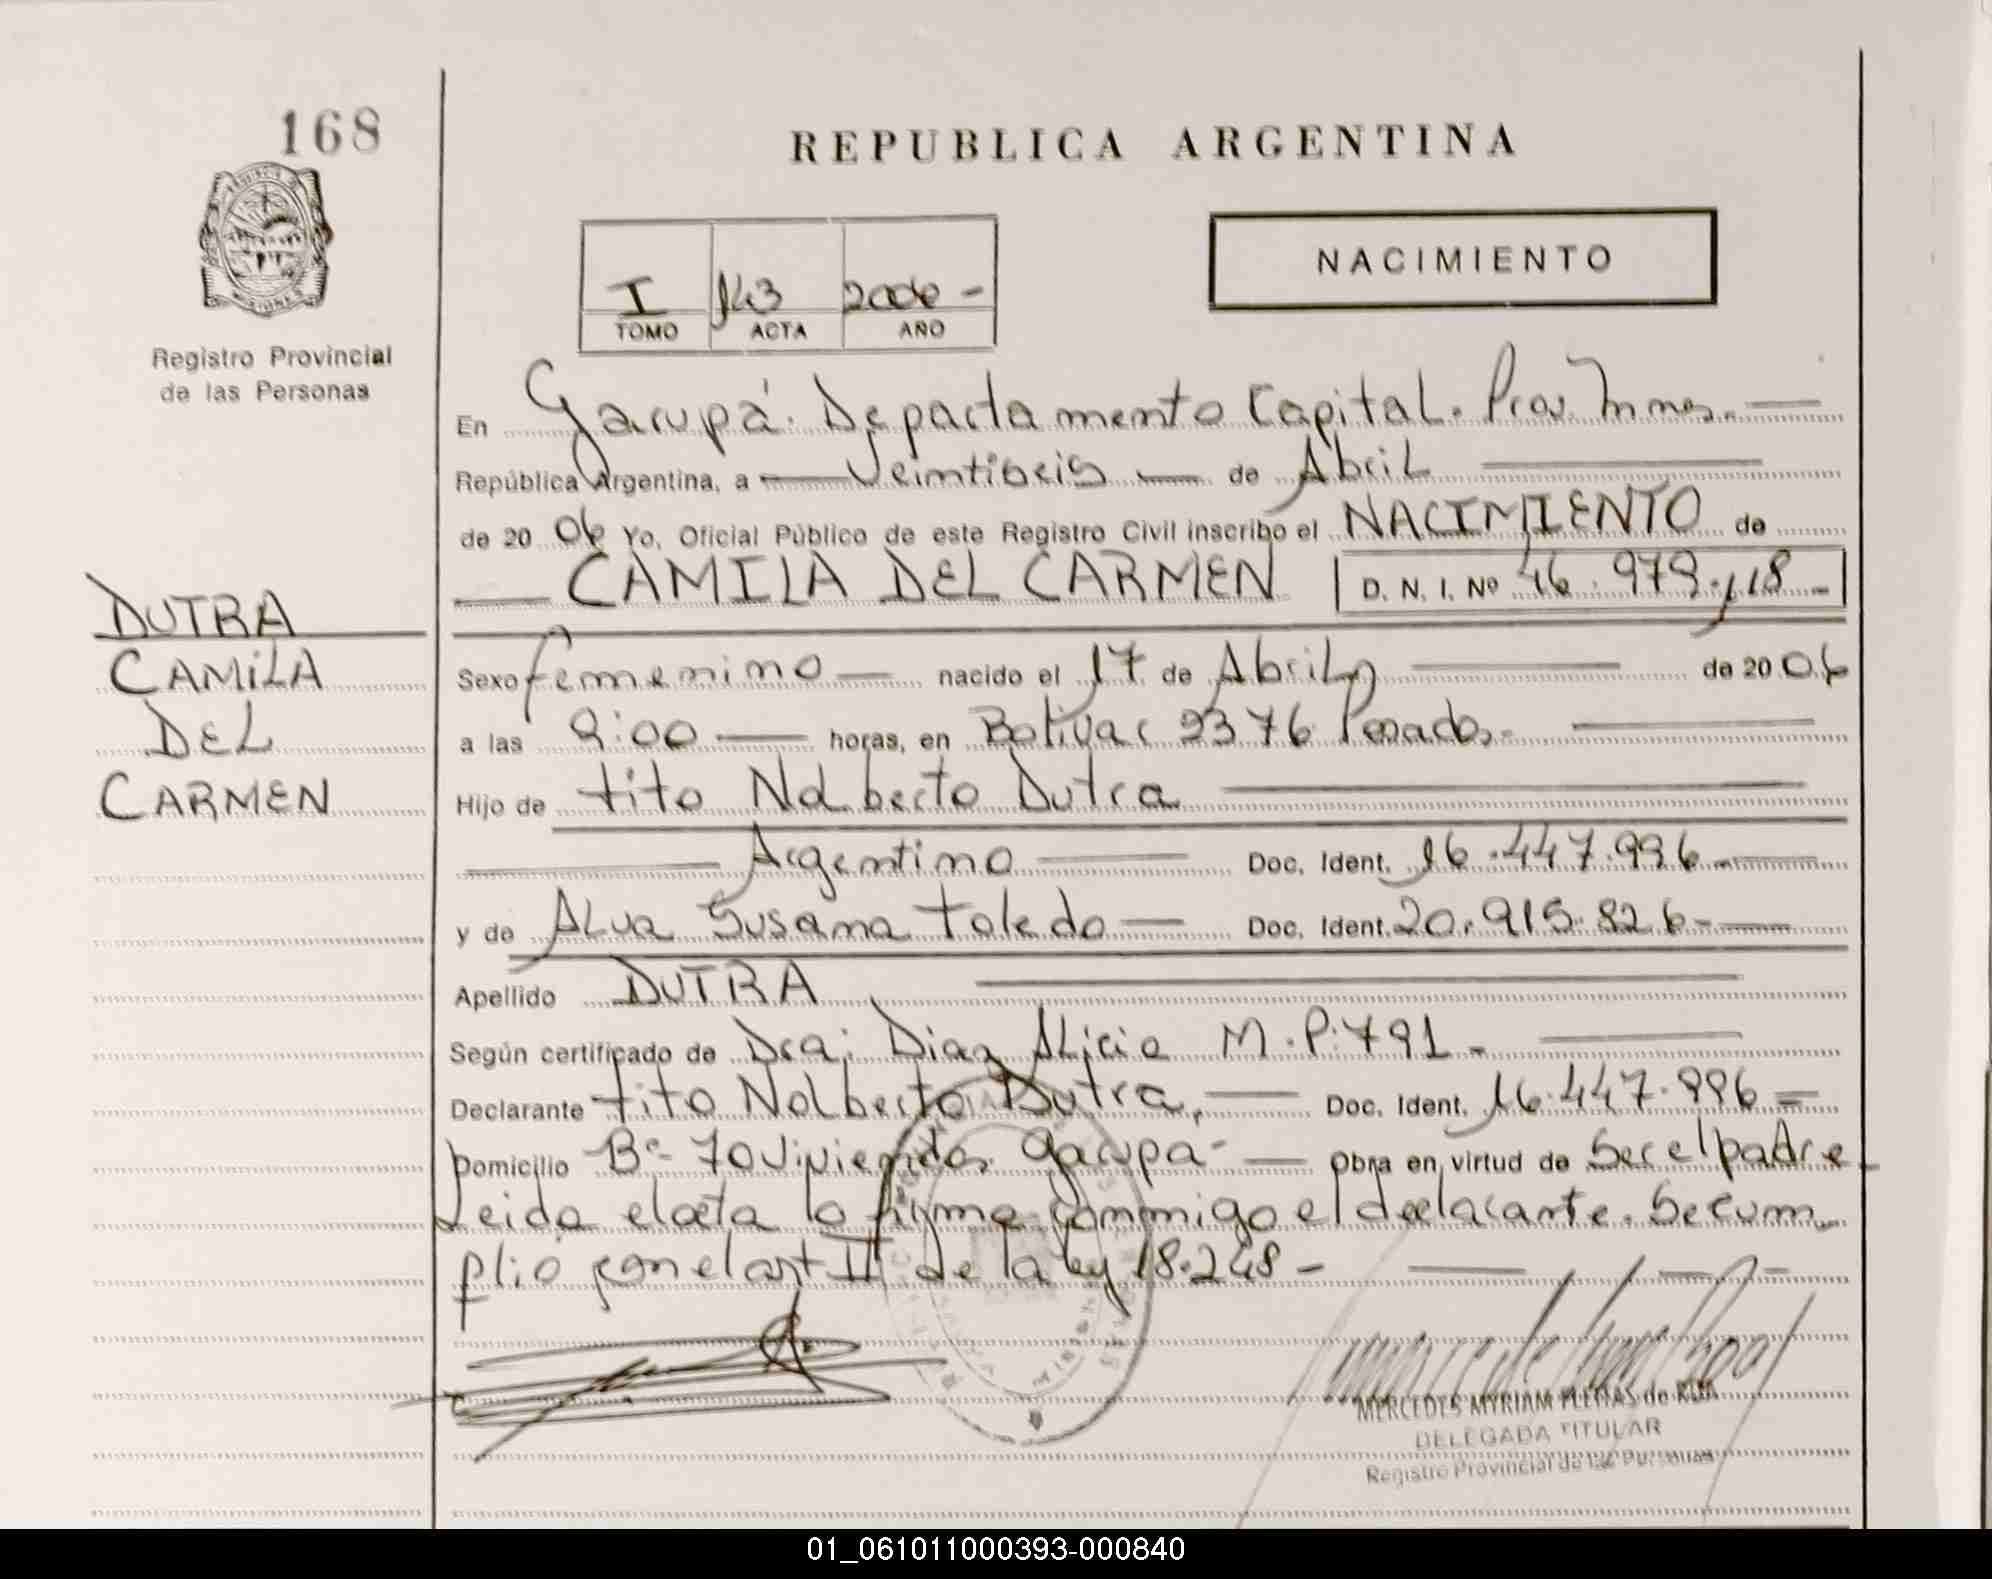 168
REPUBLICA ARGENTINA
NACIMIENTO
I 143
TOMO ACTA AÑO
Registro Provincial
de las Personas
En Garupá. Departamento Capital.
República Argentina, a Veintiseis de Abril
de 20 06 Yo, Oficial Público de este Registro Civil inscribo el NACIMIENTO de
CAMILA DEL CARMEN D. N. I. Nº 46.979.118
DUTRA
CAMILA
DEL
CARMEN
Sexo femenino nacido el 17 de Abril de 20 06
a las 9:00 horas, en Bolivar 2376 Posadas.
Hijo de tito Nolberto Dutra
Argentino Doc. Ident. 16.447.996
y de ALva Susana Toledo Doc. Ident. 20.915.826
Apellido DUTRA
Según certificado de Dra: Diaz Alicia M.P:791
Declarante tito Nolberto Dutra, Doc. Ident. 16.447.996
Domicilio Bº 70 viviendas Garupa Obra en virtud de Ser el padre
Leida el acta la firma conmigo el declarante. Se cum
plió con el art II de la ley 18.248
MERCEDES MYRIAM FLEITAS de ROA
DELEGADA TITULAR
Registro Provincial de las Personas
01_061011000393-000840